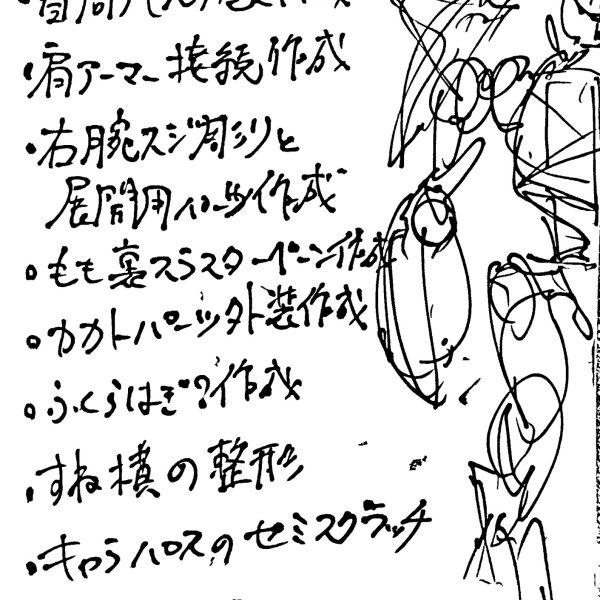 ・肩アーマー接続作成
・右腕スジ彫りと
展開用パーツ作成
・もも裏スラスターベーン作成
・カカトパーツ外装作成
・ふくらはぎ?作成
・すね横の整形
・キャラハロスのセミスクラッチ